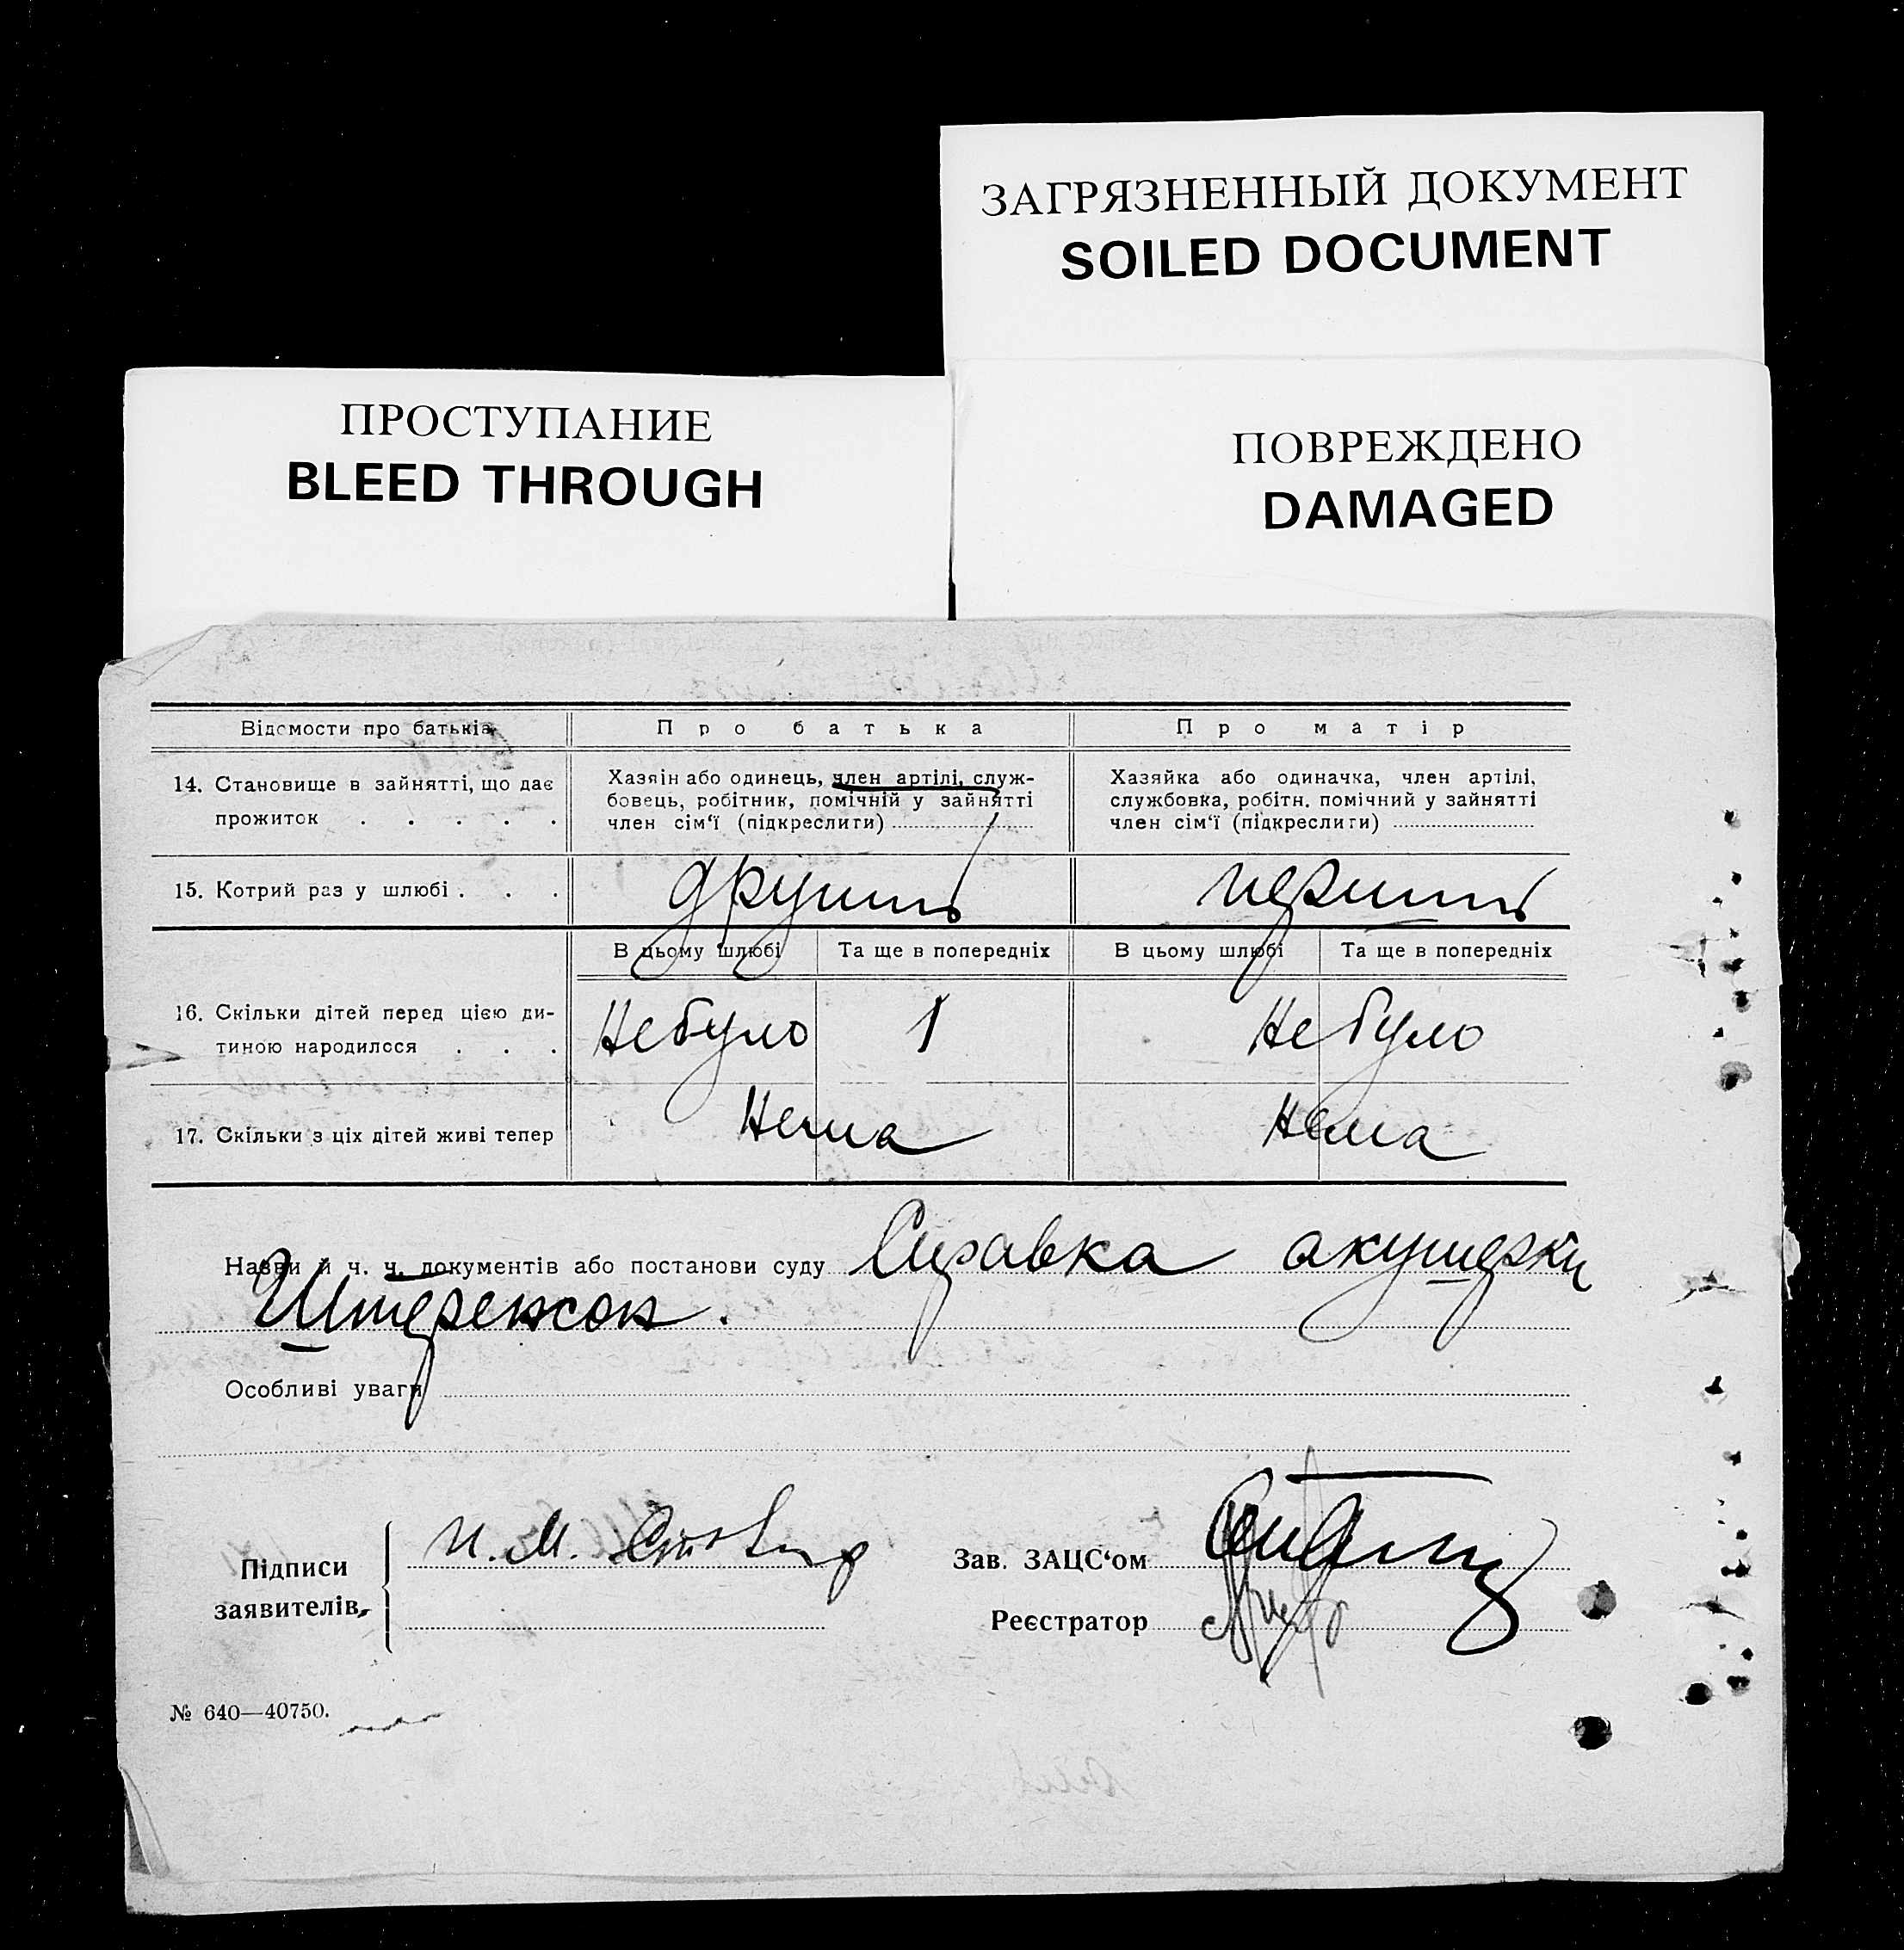 ЗАГРЯЗНЕННЫЙ ДОКУМЕНТ
SOILED DOCUMENT
ПРОСТУПАНИЕ
BLEED THROUGH
ПОВРЕЖДЕНО
DAMAGED
Відомости про батьків
Про батька
Про матір
14. Становище в зайнятті, що дає
прожиток . . . . .
Хазяін або одинець, член артілі, служ-
бовець, робітник, помічній у зайнятті
член сім'ї (підкреслити)
Хазяйка або одиначка, член артілі,
службовка, робітн. помічний у зайнятті
член сім'ї (підкреслити)
15. Котрий раз у шлюбі . . .
другий
перший
В цьому шлюбі
Та ще в попередніх
В цьому шлюбі
Та ще в попередніх
16. Скільки дітей перед цією ди-
тиною народилося . . .
Небуло
1
Небуло
17. Скільки з ціх дітей живі тепер
Нема
Нема
Назви й ч. ч. документів або постанови суду Справка акушерки
Штеренсон.
Особливі уваги
Підписи
заявителів
И. М.
Зав. ЗАЦС'ом
Реєстратор
№ 640—40750.